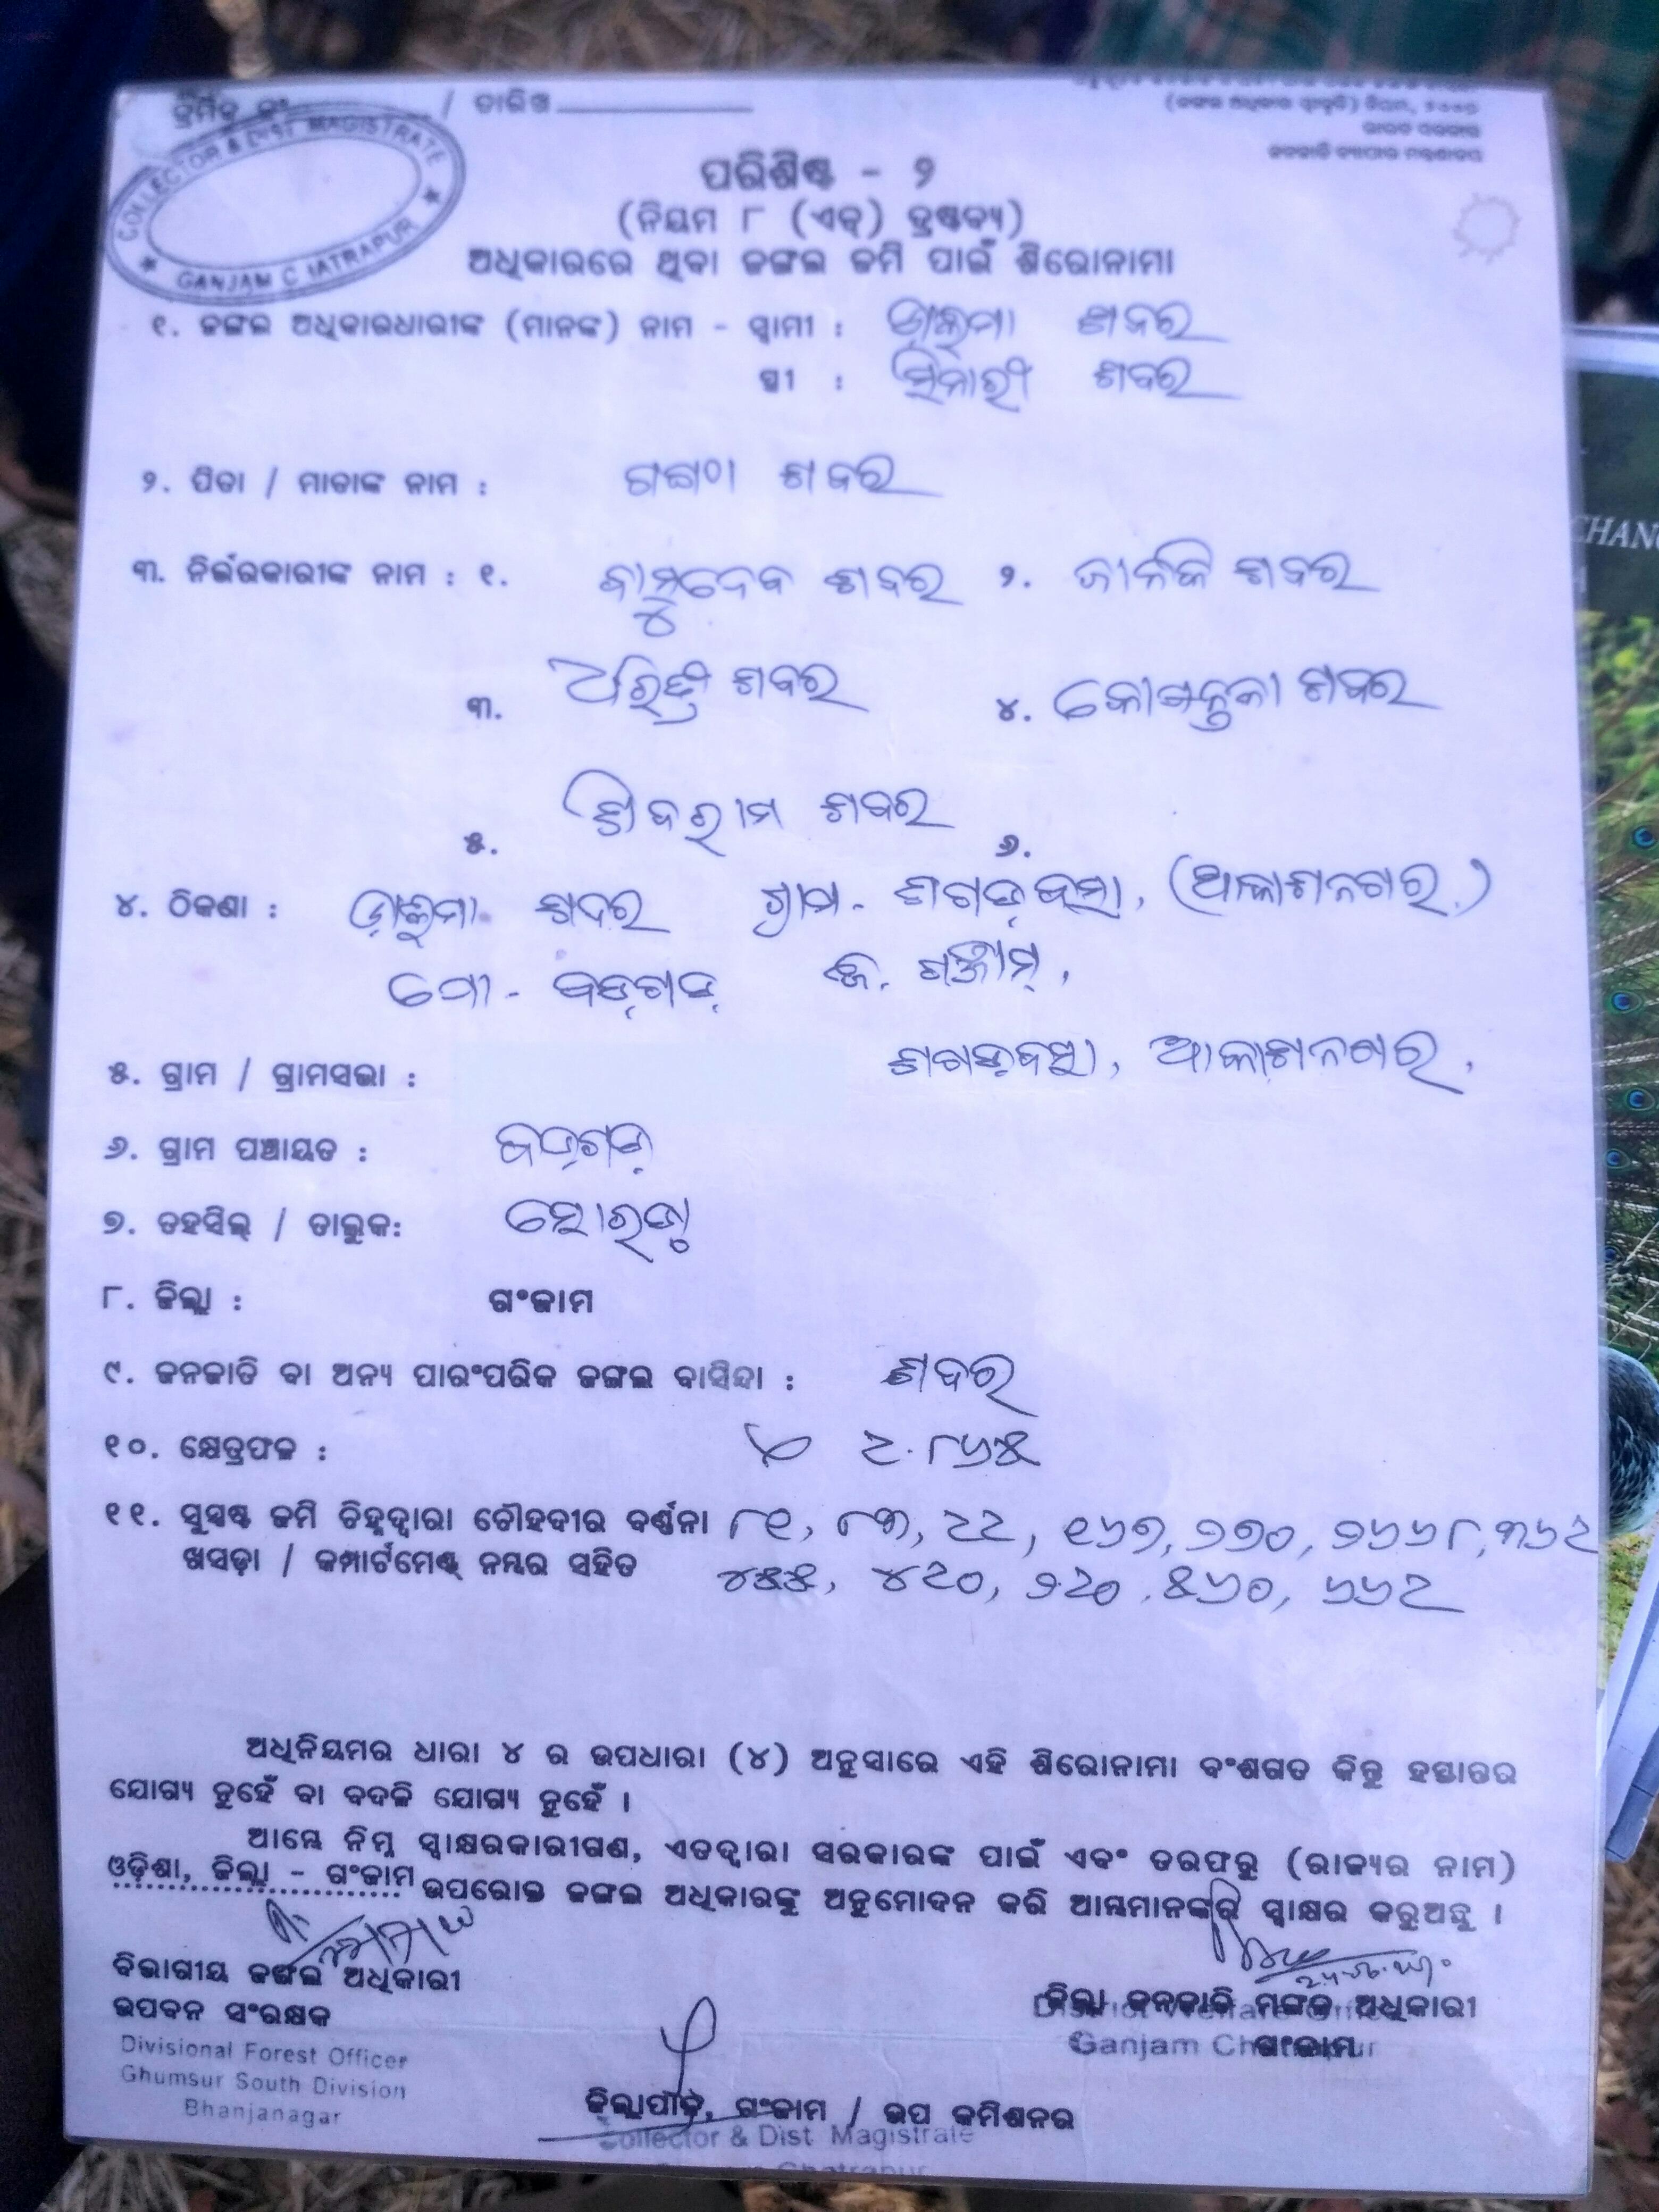 କ୍ରମିକ ନଂ / ତାରିଖ
(ଜଙ୍ଗଲ ଅଧିକାର ସ୍ୱୀକୃତି) ନିୟମ, ୨୦୦୭
ଭାରତ ସରକାର
ଜନଜାତି ବ୍ୟାପାର ମନ୍ତ୍ରଣାଳୟ
COLLECTOR & DIST MAGISTRATE
GANJAM C IATRAPUR
ପରିଶିଷ୍ଟ - ୨
(ନିୟମ ୮ (ଏଚ୍) ଦ୍ରଷ୍ଟବ୍ୟ)
ଅଧିକାରରେ ଥିବା ଜଙ୍ଗଲ ଜମି ପାଇଁ ଶିରୋନାମା
୧. ଜଙ୍ଗଲ ଅଧିକାରଧାରୀଙ୍କ (ମାନଙ୍କ) ନାମ - ସ୍ୱାମୀ : ଶବର
ସ୍ତ୍ରୀ : ଶବର
୨. ପିତା / ମାତାଙ୍କ ନାମ : ଶବର
୩. ନିର୍ଭରକାରୀଙ୍କ ନାମ : ୧. ବାସୁଦେବ ଶବର ୨. ଜାନକି ଶବର
୩. ଶବର ୪. ଶବର
୫. ଶିବରାମ ଶବର ୬.
୪. ଠିକଣା : ଶବର ଗ୍ରାମ- ଶଗଡ଼ବସା, (ଆକାଶନଗର)
ପୋ - ବଡ଼ଗଡ଼ ଜି. ଗଞ୍ଜାମ୍,
୫. ଗ୍ରାମ / ଗ୍ରାମସଭା : ଶଗଡ଼ବସା, ଆକାଶନଗର,
୬. ଗ୍ରାମ ପଞ୍ଚାୟତ : ବଡ଼ଗଡ଼
୭. ତହସିଲ୍ / ତାଲୁକ: ସୋରଡ଼ା
୮. ଜିଲ୍ଲା : ଗଂଜାମ
୯. ଜନଜାତି ବା ଅନ୍ୟ ପାରଂପରିକ ଜଙ୍ଗଲ ବାସିନ୍ଦା : ଶବର
୧୦. କ୍ଷେତ୍ରଫଳ : ୨.୮୬୫
୧୧. ସୁସ୍ପଷ୍ଟ ଜମି ଚିହ୍ନଦ୍ୱାରା ଚୌହଦୀର ବର୍ଣ୍ଣନା ୮୧, ୮୩, ୨୨, ୧୬୭, ୭୭୦, ୭୬୬୮, ୩୬୨
ଖସଡ଼ା / କମ୍ପାର୍ଟମେଣ୍ଟ୍ ନମ୍ବର ସହିତ ୪୫୫, ୪୨୦, ୭୨୦, ୫୬୦, ୬୬୨
ଅଧିନିୟମର ଧାରା ୪ ର ଉପଧାରା (୪) ଅନୁସାରେ ଏହି ଶିରୋନାମା ବଂଶଗତ କିନ୍ତୁ ହସ୍ତାନ୍ତର
ଯୋଗ୍ୟ ନୁହେଁ ବା ବଦଳି ଯୋଗ୍ୟ ନୁହେଁ ।
ଆମ୍ଭେ ନିମ୍ନ ସ୍ୱାକ୍ଷରକାରୀଗଣ, ଏତଦ୍ୱାରା ସରକାରଙ୍କ ପାଇଁ ଏବଂ ତରଫରୁ (ରାଜ୍ୟର ନାମ)
ଓଡ଼ିଶା, ଜିଲ୍ଲା - ଗଂଜାମ ଉପରୋକ୍ତ ଜଙ୍ଗଲ ଅଧିକାରଙ୍କୁ ଅନୁମୋଦନ କରି ଆମ୍ଭମାନଙ୍କରି ସ୍ୱାକ୍ଷର କରୁଅଛୁ ।
ବିଭାଗୀୟ ଜଙ୍ଗଲ ଅଧିକାରୀ
ଉପବନ ସଂରକ୍ଷକ
Divisional Forest Officer
Ghumsur South Division
Bhanjanagar
ଜିଲ୍ଲା ଜନଜାତି ମଙ୍ଗଳ ଅଧିକାରୀ
ଗଂଜାମ
District Welfare Officer
Ganjam Chatrapur
ଜିଲ୍ଲାପାଳ, ଗଂଜାମ / ଉପ କମିଶନର
Collector & Dist Magistrate
Chatrapur